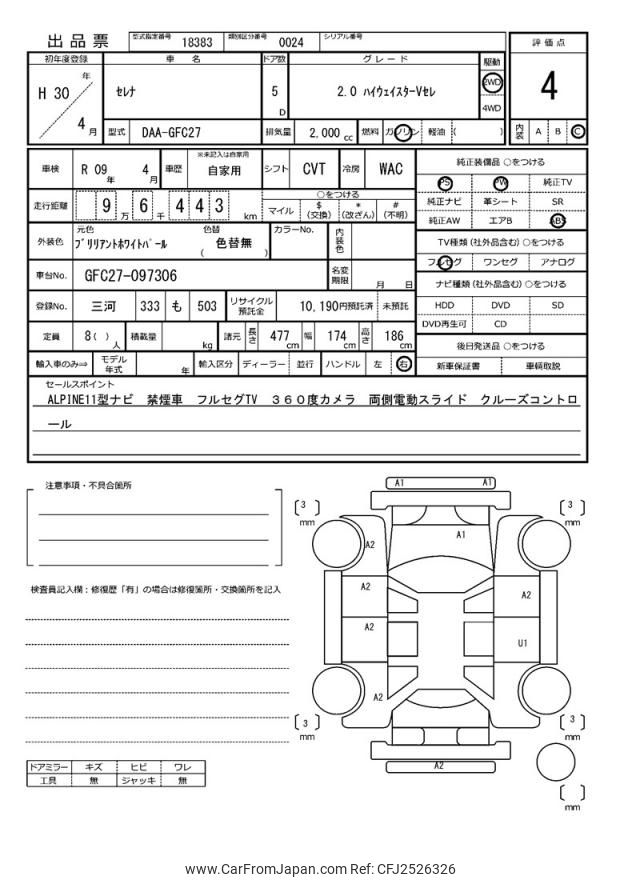 出品票 型式指定番号 18383 類別区分番号 0024 シリアル番号
評価点
4
内装 A B C
初年度登録 車名 ドア数 グレード 駆動
H 30 年 4 月 セレナ 5 D 2.0 ハイウェイスターVセレ 2WD 4WD
型式 DAA-GFC27 排気量 2,000 cc 燃料 ガソリン 軽油 ( )
車検 R 09 年 4 月 車歴 ※未記入は自家用 自家用 シフト CVT 冷房 WAC
走行距離 9 万 6 千 4 4 3 km ○をつける
マイル $ (交換) * (改ざん) # (不明)
外装色 元色 ブリリアントホワイトパール 色替 ( 色替無 ) カラーNo. 内装色
車台No. GFC27-097306 名変期限 月 日
登録No. 三河 333 も 503 リサイクル預託金 10,190円預託済 未預託
定員 8( ) 人 積載量 kg 諸元 長さ 477 cm 幅 174 cm 高さ 186 cm
輸入車のみ⇒ モデル年式 年 輸入区分 ディーラー 並行 ハンドル 左 右
純正装備品 ○をつける
PS PW 純正TV
純正ナビ 革シート SR
純正AW エアB ABS
TV種類 (社外品含む) ○をつける
フルセグ ワンセグ アナログ
ナビ種類 (社外品含む) ○をつける
HDD DVD SD
DVD再生可 CD
後日発送品 ○をつける
新車保証書 車輌取説
セールスポイント
ALPINE11型ナビ 禁煙車 フルセグTV 360度カメラ 両側電動スライド クルーズコントロ
ール
注意事項・不具合箇所
検査員記入欄：修復歴「有」の場合は修復箇所・交換箇所を記入
ドアミラー キズ ヒビ ワレ
工具 無 ジャッキ 無
A1 A1
[ 3 ] mm [ 3 ] mm
A1
A2
A2 A2
A2 U1
A2
[ 3 ] mm [ 3 ] mm
A2
[ ] mm
www.CarFromJapan.com Ref: CFJ2526326